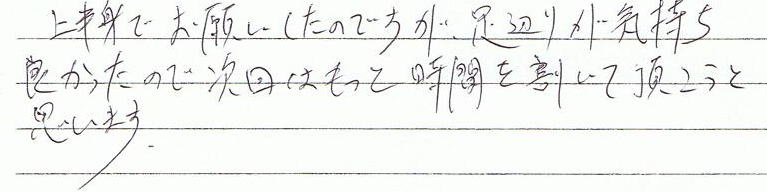 上半身でお願いしたのですが、足辺りが気持ち
良かったので次回はもっと時間を割いて頂こうと
思います.